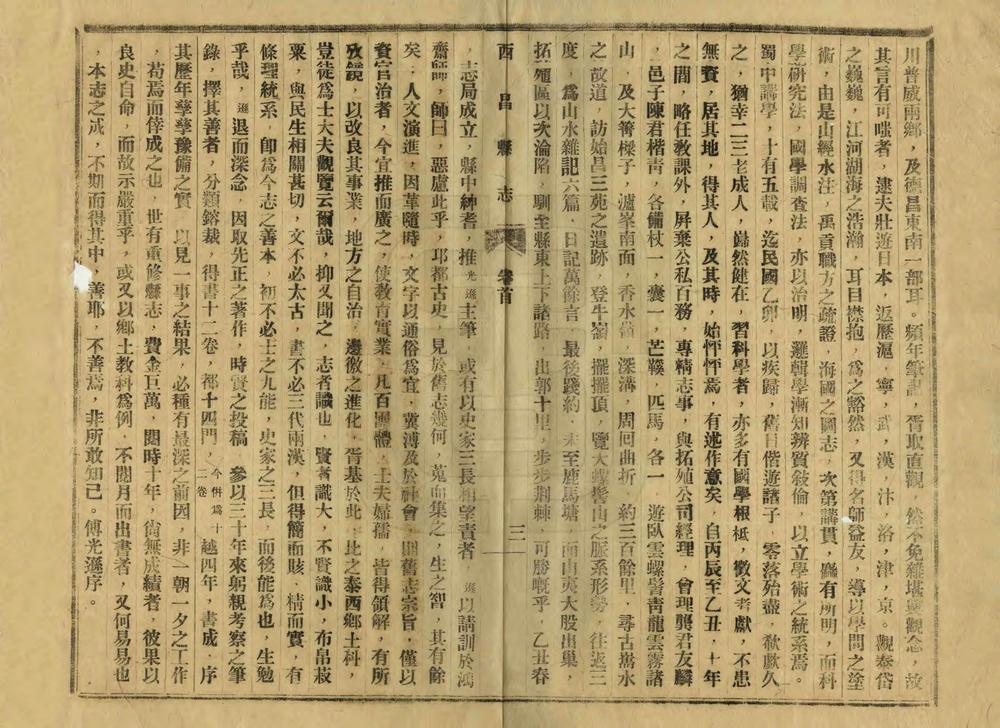 川普威兩鄉，及德昌東南一部耳。頻年筆記，胥取直觀，然不免雜堪輿觀念，故
其言有可嗤者，逮夫壯遊日本，返歷滬，寧，武，漢，汴，洛，津，京。觀泰岱
之巍巍，江河湖海之浩瀚，耳目襟抱，爲之豁然，又得名師益友，導以學問之塗
術，由是山經水注，禹貢職方之疏證，海國之圖志，次第講貫，膓有所明，而科
學研究法，國學調查法，亦以治明，邏輯學漸知辨質敍倫，以立學術之統系焉。
蜀中講學，十有五載，迄民國乙卯，以疾歸，舊日偕遊諸子，零落殆盡，欷歔久
之，猶幸二三老成人，巋然健在，習科學者，亦多有國學根柢，徵文考獻，不患
無資，居其地，得其人，及其時，始怦怦焉，有述作意矣，自丙辰至乙丑，十年
之間，略任教課外，屏棄公私百務，專精志事，與拓殖公司經理，會理龔君友麟
，邑子陳君楷靑，各備杖一，囊一，芒鞵，匹馬，各一，遊臥雲螺髻靑龍雲霧諸
山，及大箐樑子，瀘峯南面，香水營，深溝，周回曲折，約三百餘里，尋古嶲水
之故道，訪始昌三苑之遺跡，登牛嶺，擺擺頂，覽大螺髻山之脈系形勢，往返三
度，爲山水雜記六篇，日記萬餘言，最後踐約，未至鹿馬塘，而山夷大股出巢，
拓殖區以次淪陷，馴至縣東上下諸路，出郭十里，步步荆棘，可勝嘅乎，乙丑春
西昌縣志 卷首 三
，志局成立，縣中紳耆，推光遜主筆，或有以史家三長相望責者，遜以請訓於鴻
齋師，師曰，惡慮此乎，邛都古史，見於舊志幾何，蒐而集之，生之智，其有餘
矣，人文演進，因革隨時，文字以通俗爲宜，冀溥及於社會，則舊志宗旨，僅以
資官治者，今宜推而廣之，使敎育實業，凡百團體，士夫婦孺，皆得領解，有所
攷鏡，以改良其事業，地方之自治，邊徼之進化，胥基於此，比之泰西鄉土科，
豈徒爲士大夫觀覽云爾哉，抑又聞之，志者識也，賢者識大，不賢識小，布帛菽
粟，與民生相關甚切，文不必太古，書不必三代兩漢，但得簡而賅，精而實，有
條理統系，卽爲今志之善本，初不必士之九能，史家之三長，而後能爲也，生勉
乎哉，遜退而深念，因取先正之著作，時賢之投稿，參以三十年來躬親考察之筆
錄，擇其善者，分類鎔裁，得書十二卷，都十四門，今併爲十二卷 越四年，書成，序
其歷年孳孳豫備之實，以見一事之結果，必種有最深之前因，非一朝一夕之工作
，苟焉而倖成之也，世有重修縣志，費金巨萬，閱時十年，尙無成績者，彼果以
良史自命，而故示嚴重乎，或又以鄉土敎科爲例，不閱月而出書者，又何易易也
，本志之成，不期而得其中，善耶，不善焉，非所敢知已。傅光遜序。